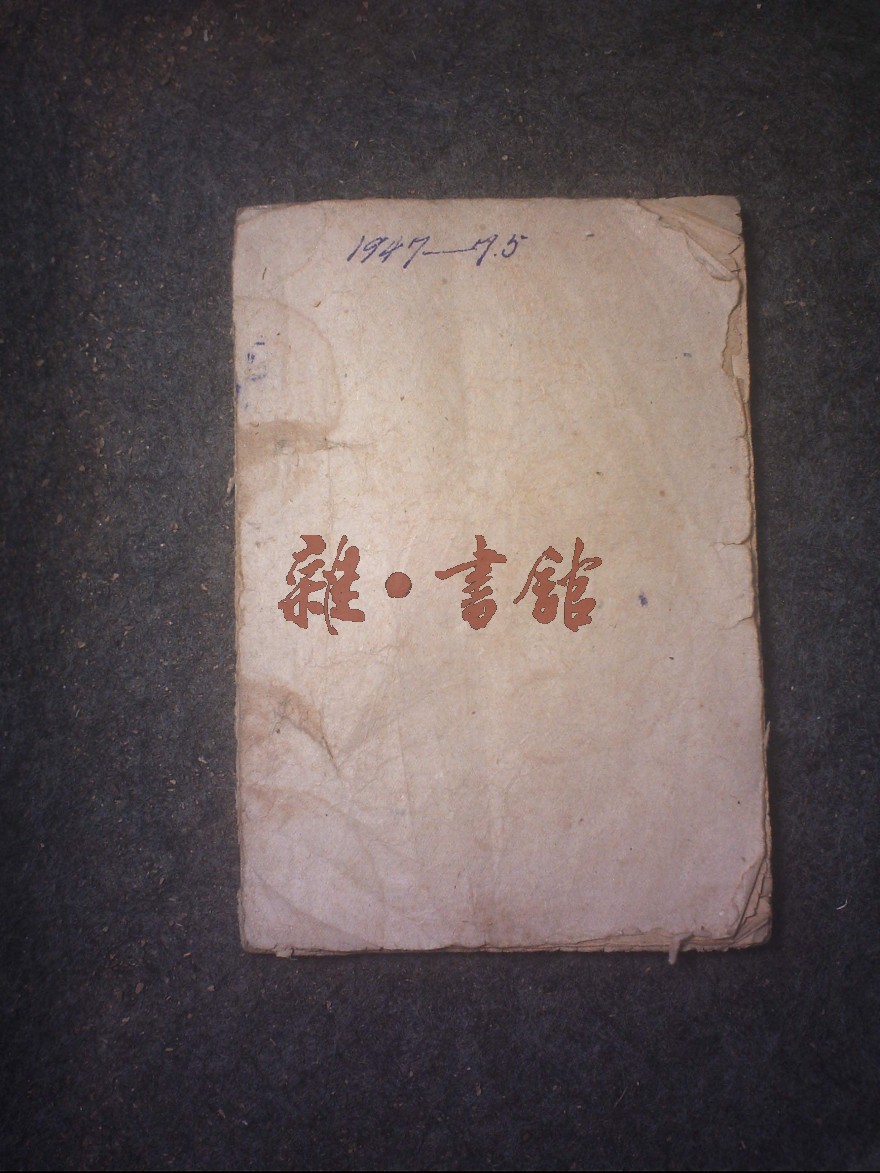 1947—7.5
雜·書館